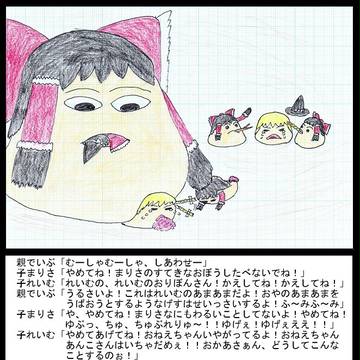 親でいぶ「むーしゃむーしゃ、しあわせー」
子まりさ「やめてね！まりさのすてきなおぼうしたべないでね！」
子れいむ「れいむの、れいむのおりぼんさん！かえしてね！かえしてね！」
親でいぶ「うるさいよ！これはれいむのあまあまだよ！おやのあまあまを
うばおうとするようなげすはせいっさいするよ！ふ～みふ～み」
子まりさ「や、やめてね！まりさなにもわるいことしてないよ！やめてね！
ゆぶっ、ちゅ、ちゅぶれりゅ～！！ゆげぇ！ゆげぇええ！！」
子れいむ「やめてあげてね！おねえちゃんいやがってるよ！おねえちゃん
あんこさんはいちゃだめぇ！！おかあさぁん、どうしてこんな
ことするのぉ！」